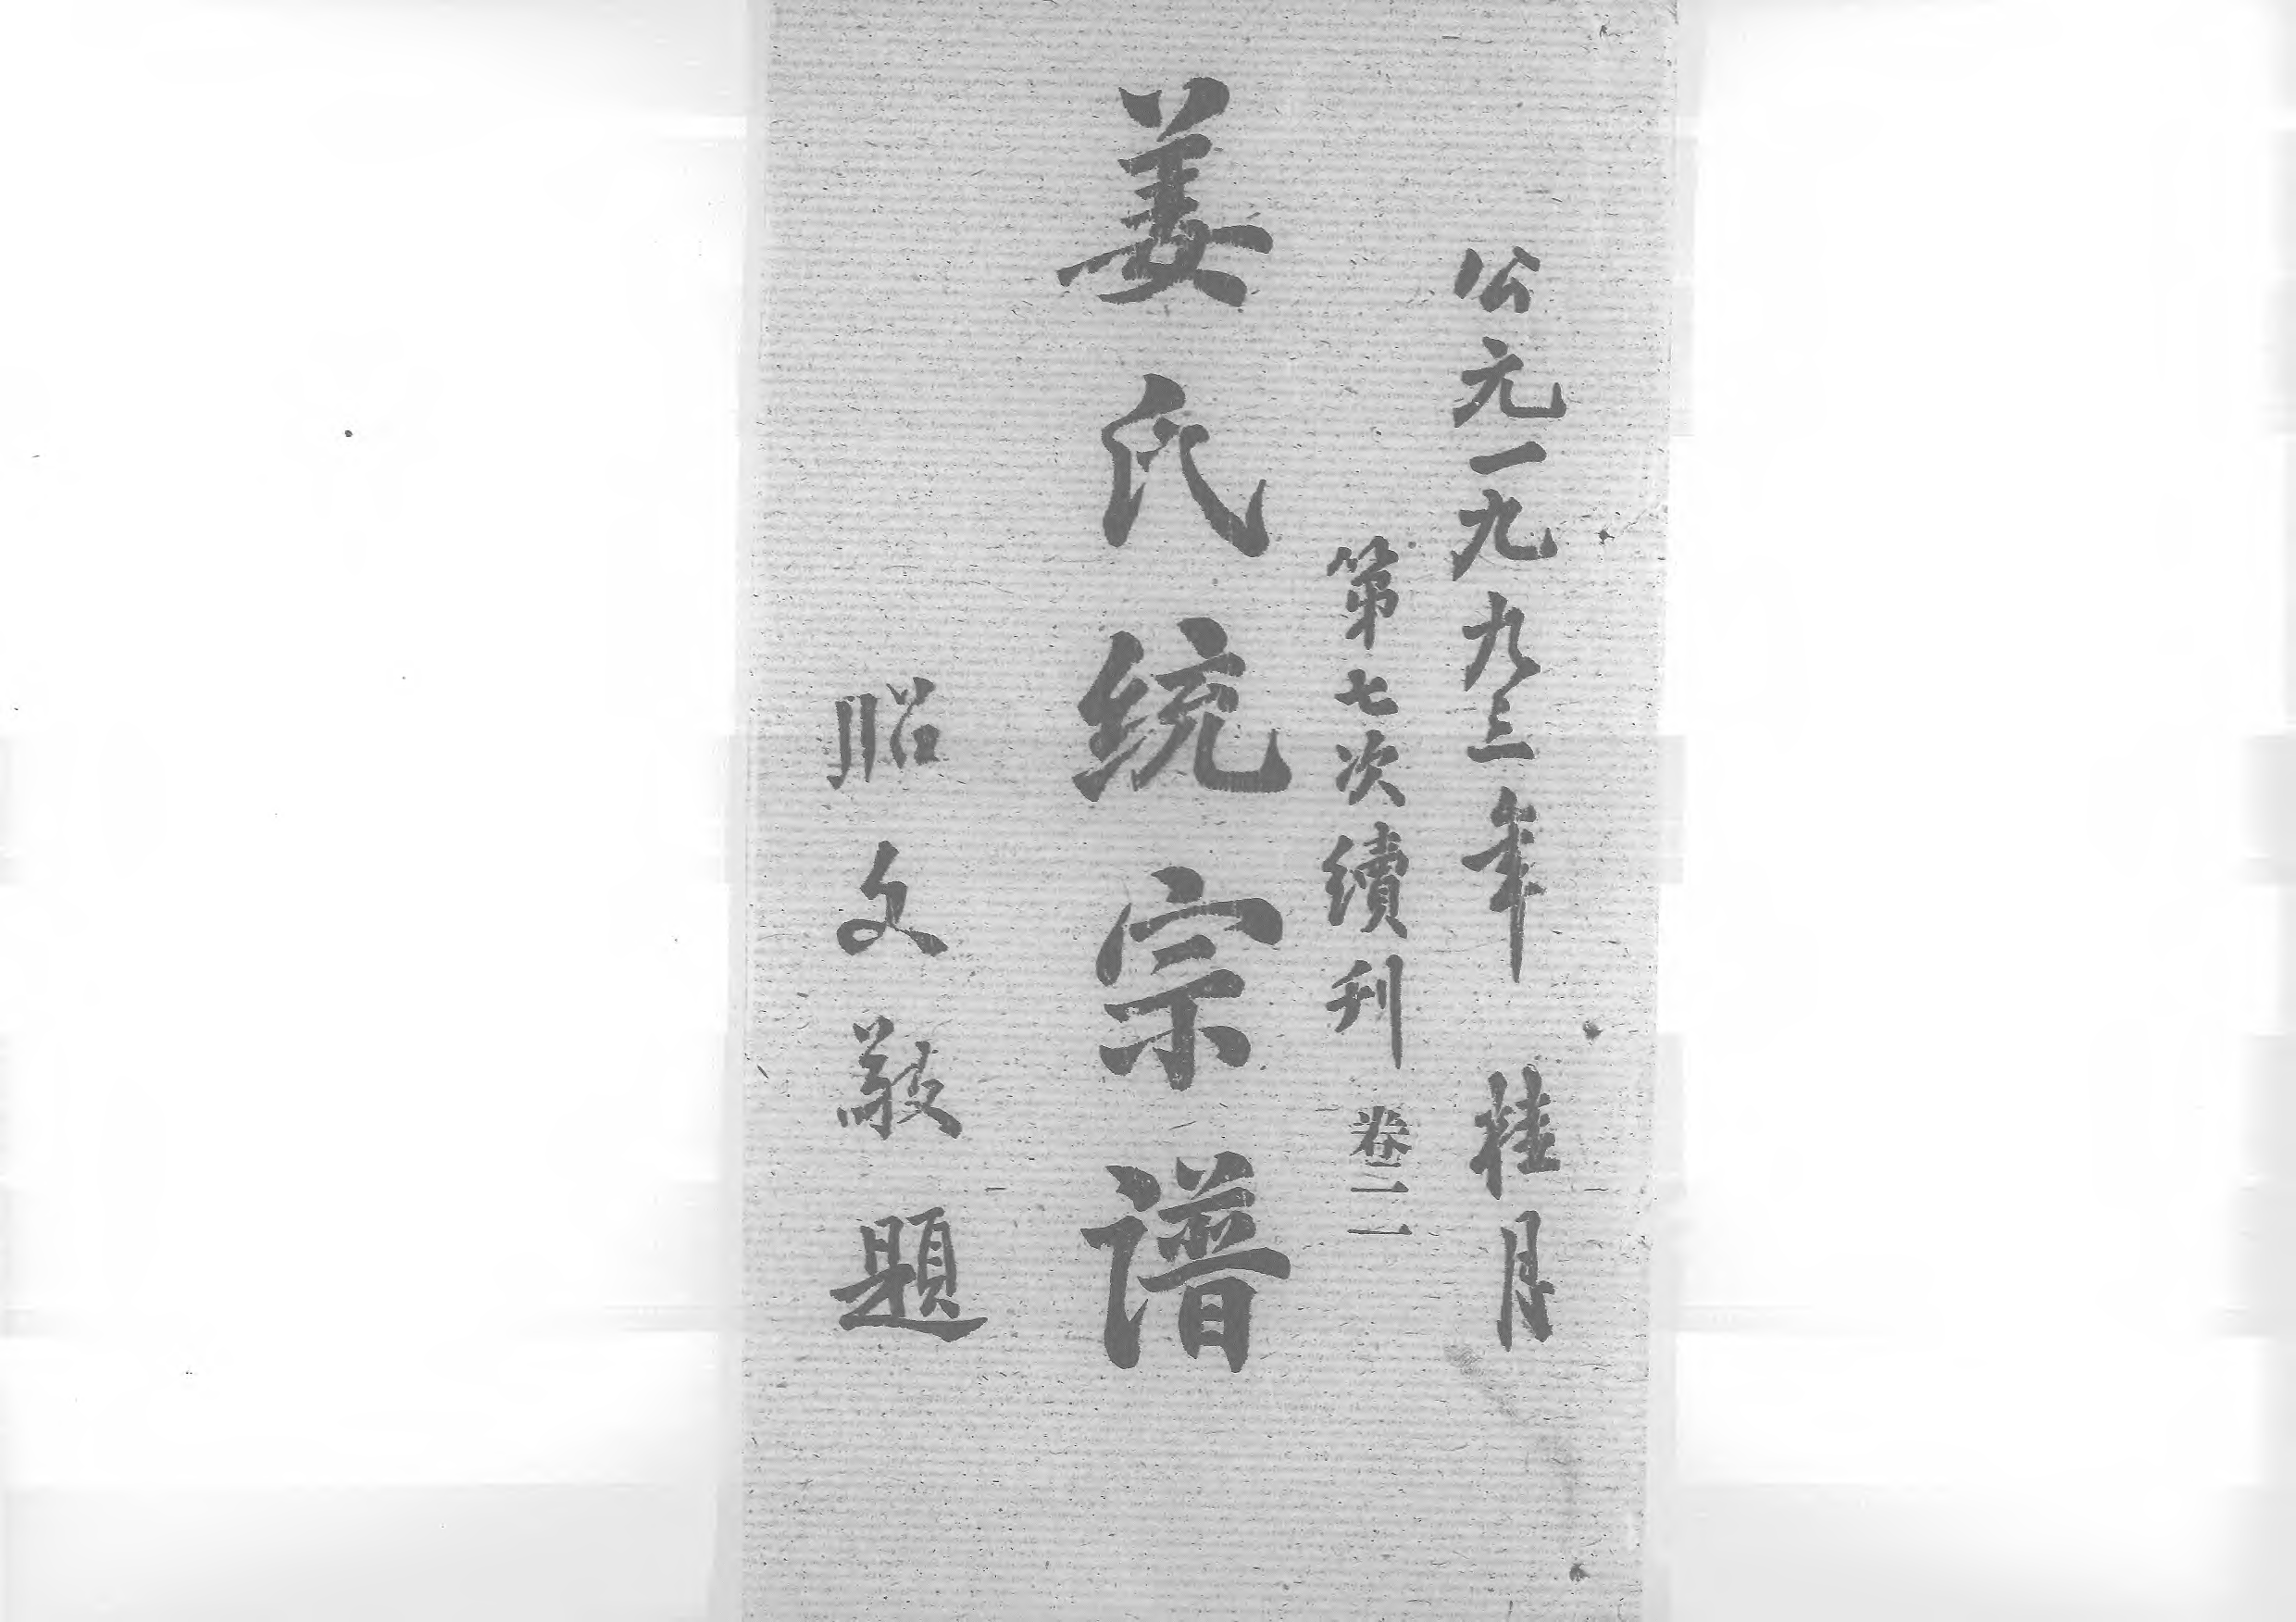 公元一九九三年 桂月
第七次續刊 卷二一
姜氏统宗谱
昭文敬題